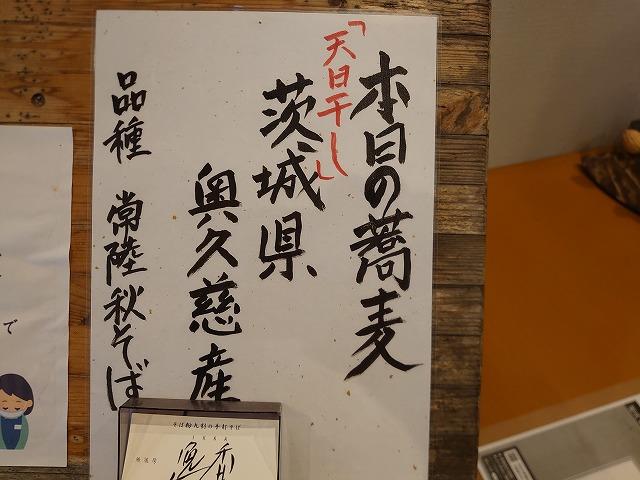 本日の蕎麦
「天日干し」
茨城県
奥久慈産
品種 常陸秋そば
で
そば粉九割の手打そば